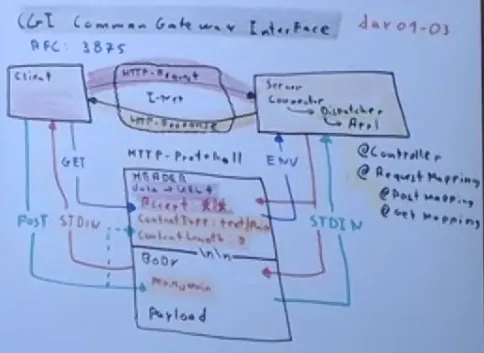 CGI Common Gateway Interface day01-03
RFC: 3875
HTTP-Request
Client
I-Net
HTTP-Response
Server
Connector
Dispatcher
Appl
GET
HTTP-Protokoll
ENV
@Controller
@RequestMapping
@PostMapping
@GetMapping
HEADER
data → URL
Accept */*
ContentType: text/plain
ContentLength:
POST
STDIN
STDIN
\n\n
BODY
Payload